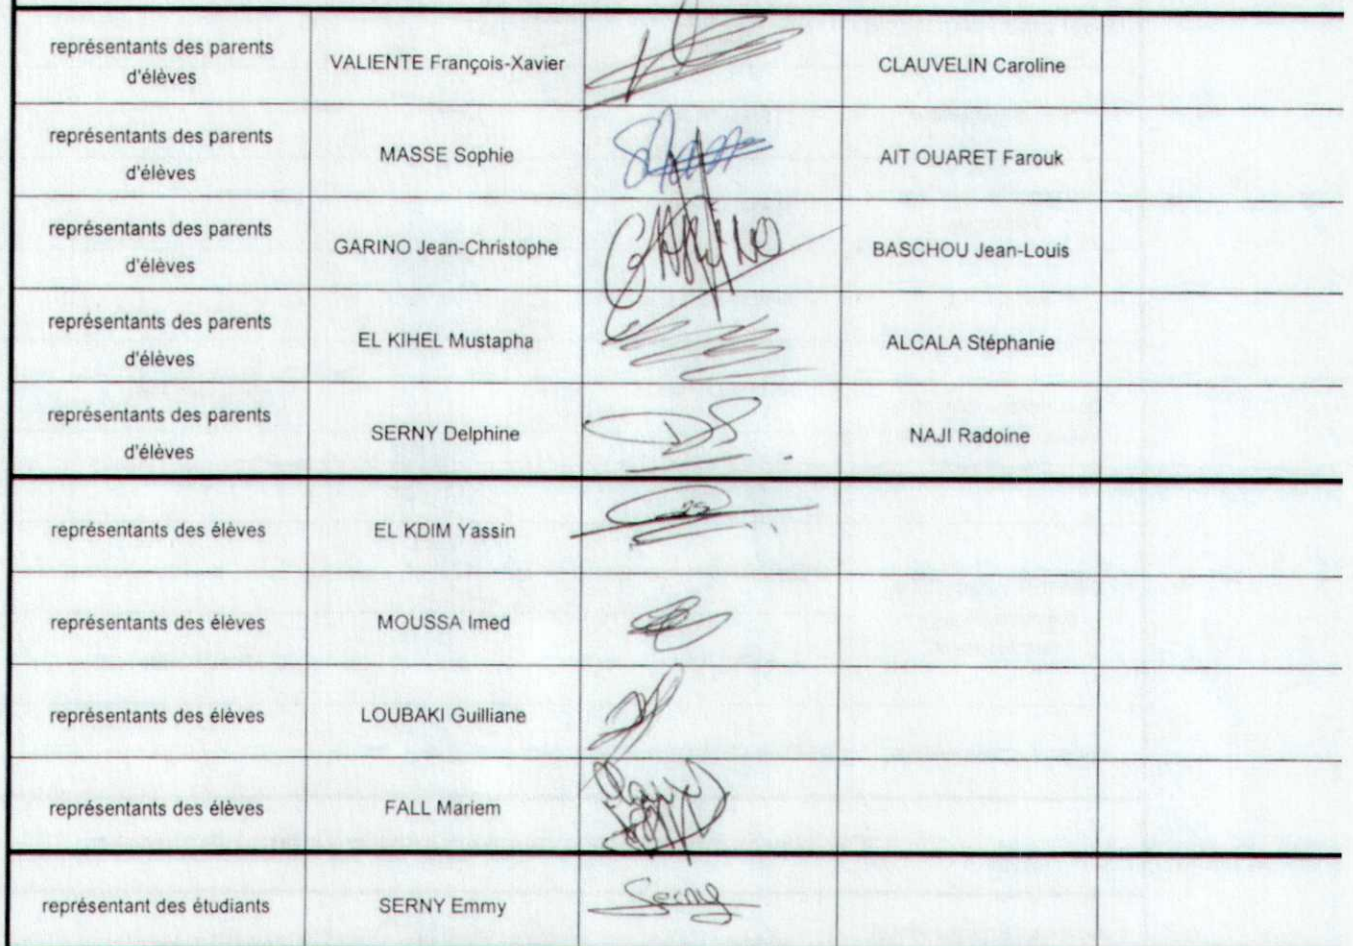 représentants des parents
d'élèves
VALIENTE François-Xavier
CLAUVELIN Caroline
représentants des parents
d'élèves
MASSE Sophie
AIT OUARET Farouk
représentants des parents
d'élèves
GARINO Jean-Christophe
BASCHOU Jean-Louis
représentants des parents
d'élèves
EL KIHEL Mustapha
ALCALA Stéphanie
représentants des parents
d'élèves
SERNY Delphine
DS
NAJI Radoine
représentants des élèves
EL KDIM Yassin
représentants des élèves
MOUSSA Imed
représentants des élèves
LOUBAKI Guilliane
représentants des élèves
FALL Mariem
représentant des étudiants
SERNY Emmy
Serny